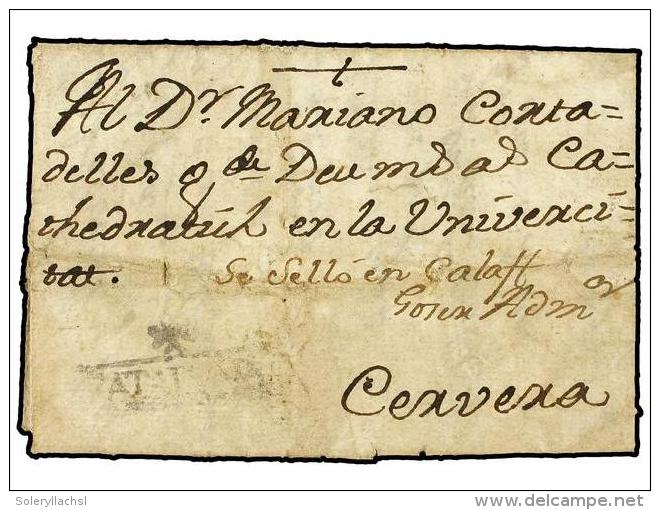 Al Dr. Mariano Corta=
delles q de Deu md ad Ca=
thedratich en la Univerci=
tat. Se Selló en Calaff
Adm or
Cervera
Soleryllachsl
delcampe.net